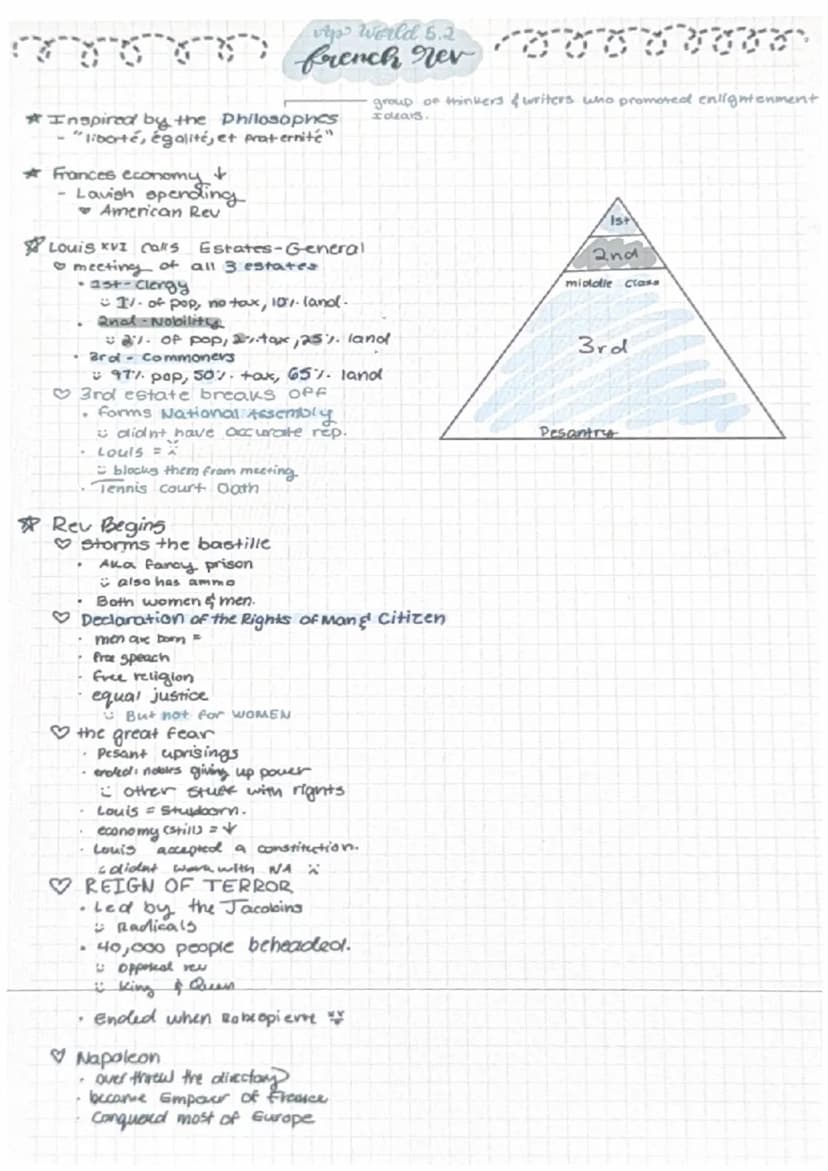 AP World 5.2
french rev
group of thinkers & writers who promoted enlightenment
Ideals.
★ Inspired by the Philosophes
- "liberté, égalité, et fraternité"
★ Frances economy ↓
- Lavish spending
♥ American Rev
☆ Louis XVI calls Estates-General
♡ meeting of all 3 estates
• 1st - Clergy
ü 1% of pop, no tax, 10% land.
• 2nd - Nobility
ü 2% of pop, 2% tax, 25% land
• 3rd - Commoners
ü 97% pop, 50% tax, 65% land
♡ 3rd estate breaks off
• forms National Assembly
ü didnt have accurate rep.
• Louis =
ü blocks them from meeting
• Tennis court Oath
1st
2nd
middle class
3rd
Pesantry
☆ Rev Begins
♡ Storms the bastille
• AKA fancy prison
ü also has ammo
• Both women & men.
♡ Declaration of the Rights of Man & Citizen
• men are born =
• free speach
• free religion
• equal justice
ü But not for WOMEN
♡ the great fear
• Pesant uprisings
• nobles giving up power
ü other stuff with rights
• Louis = Stubborn.
• economy (still) = ↓
• Louis accepted a constitution.
didnt work with NA
♡ REIGN OF TERROR
• Led by the Jacobins
ü Radicals
• 40,000 people beheaded.
ü opposed rev
ü King & Queen
• Ended when Robespierre
♡ Napoleon
• over threw the directory
• became Emperor of France
• Conquered most of Europe